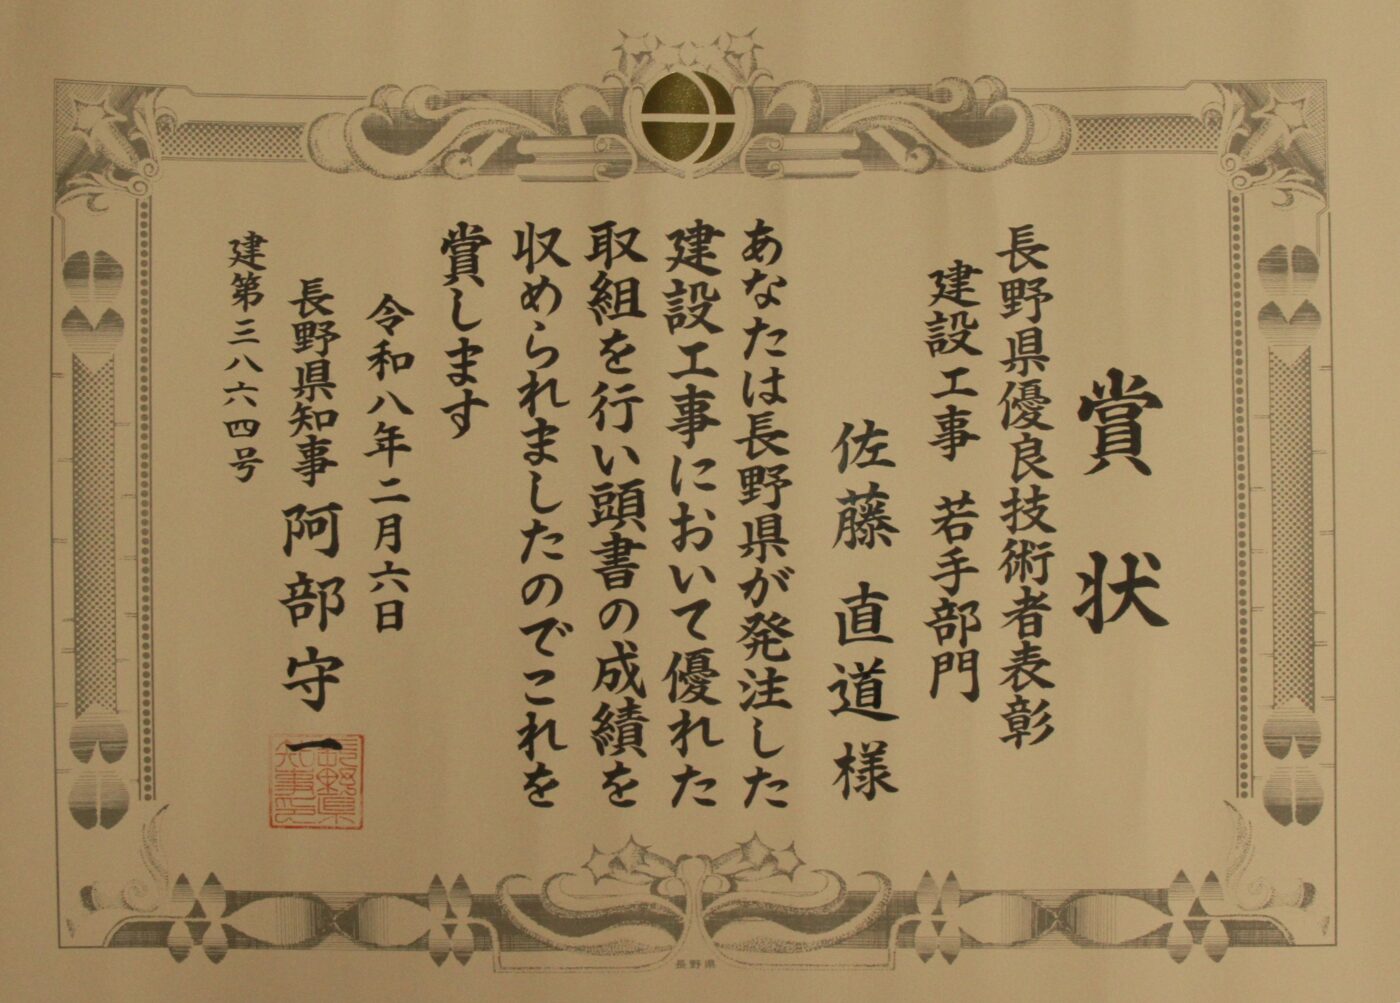 賞状
長野県優良技術者表彰
建設工事 若手部門
佐藤直道様
あなたは長野県が発注した
建設工事において優れた
取組を行い頭書の成績を
収められましたのでこれを
賞します
令和八年二月六日
長野県知事 阿部守一
長野県
知事之印
建第三八六四号
長野県